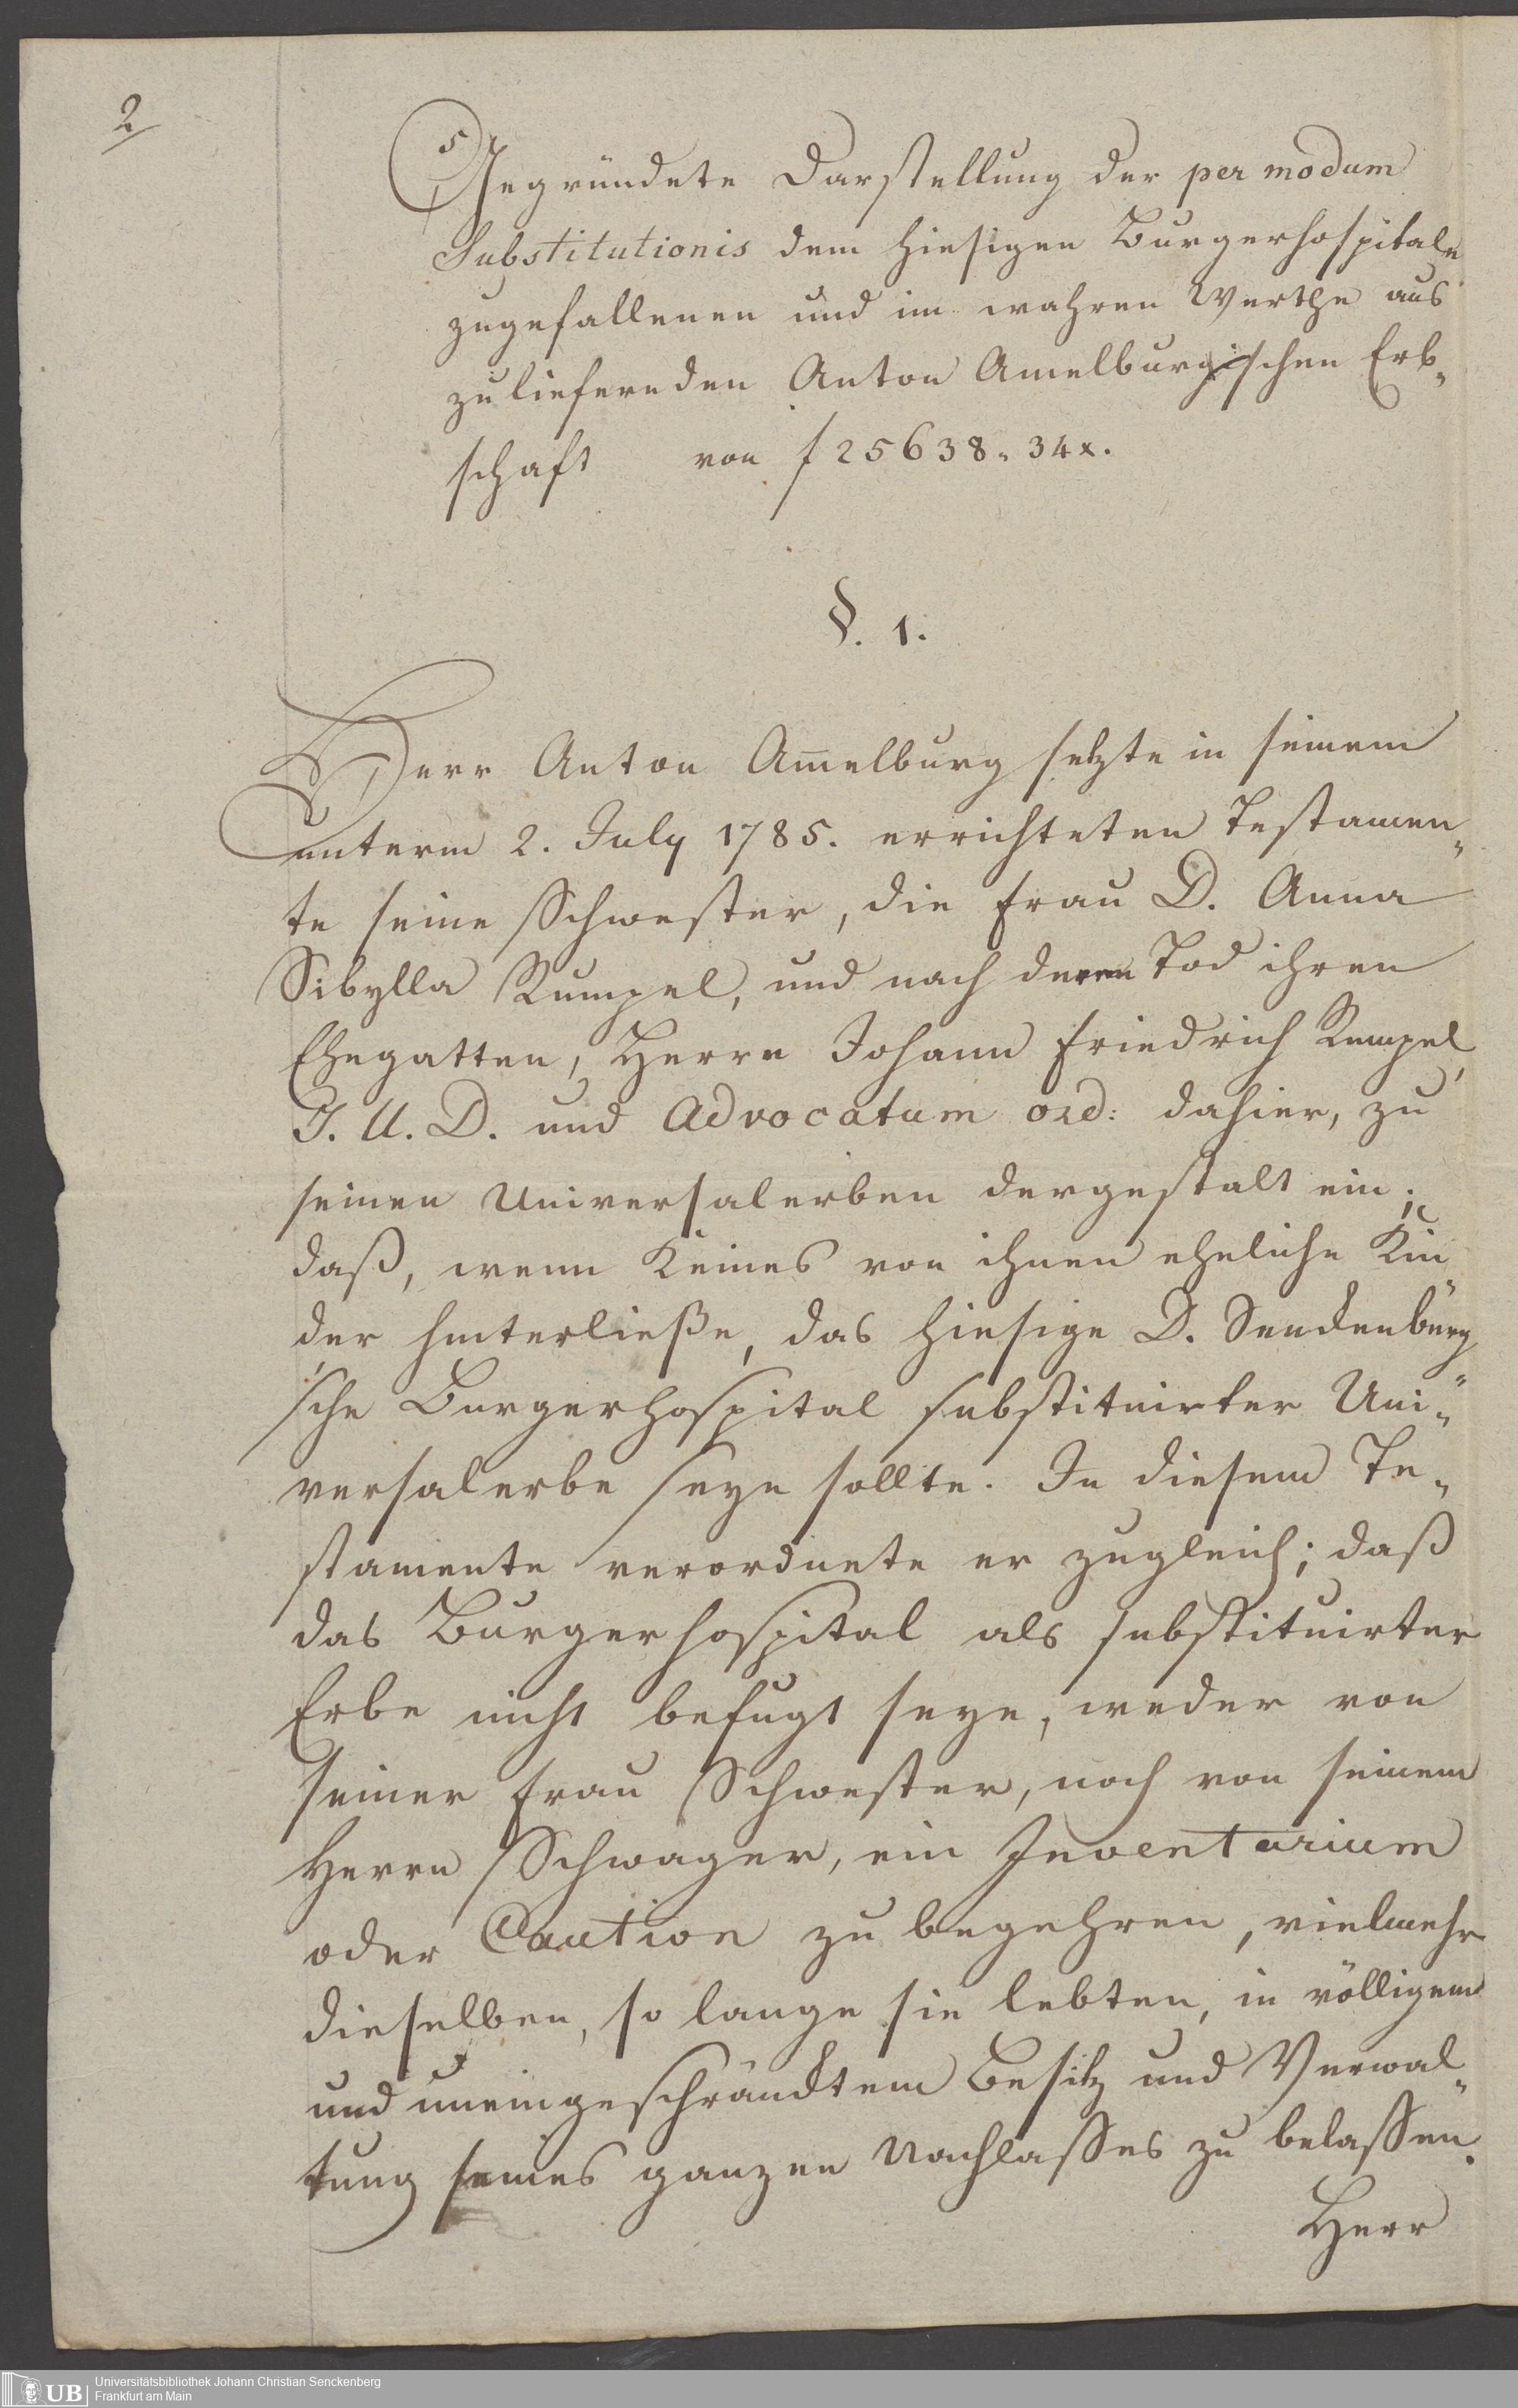 2
Gegründete Darstellung der per modum
Substitutionis dem hiesigen Burgerhospitale
zugefallenen und im wahren Werthe aus
zuliefernden Anton Amelburgischen Erb„
schaft von f 25638„ 34x.
§. 1.
Herr Anton Am̅elburg setzte in seinem
unterm 2. July 1785. errichteten Testamen„
te seine Schwester, die Frau D. Anna
Sibylla Rumpel, und nach deren Tod ihren
Ehegatten, Herrn Johann Friedrich Rumpel,
J. U. D. und Advocatum ord: dahier, zu
seinen Universalerben dergestalt ein;
daß, wenn Keines von ihnen eheliche Kin„
der hinterließe, das hiesige D. Senckenberg„
'sche Burgerhospital substituirter Uni„
versalerbe seyn sollte. In diesem Te„
stamente verordnete er zugleich; daß
das Burgerhospital als substituirter
Erbe nicht befugt seye, weder von
seiner Frau Schwester, noch von seinem
Herrn Schwager, ein Inventarium
oder Caution zu begehren, vielmehr
dieselben, so lange sie lebten, in völligem
und uneingeschräncktem Besitz und Verwal„
tung seines ganzen Nachlasses zu belassen.
Herr
UB
Universitätsbibliothek Johann Christian Senckenberg
Frankfurt am Main